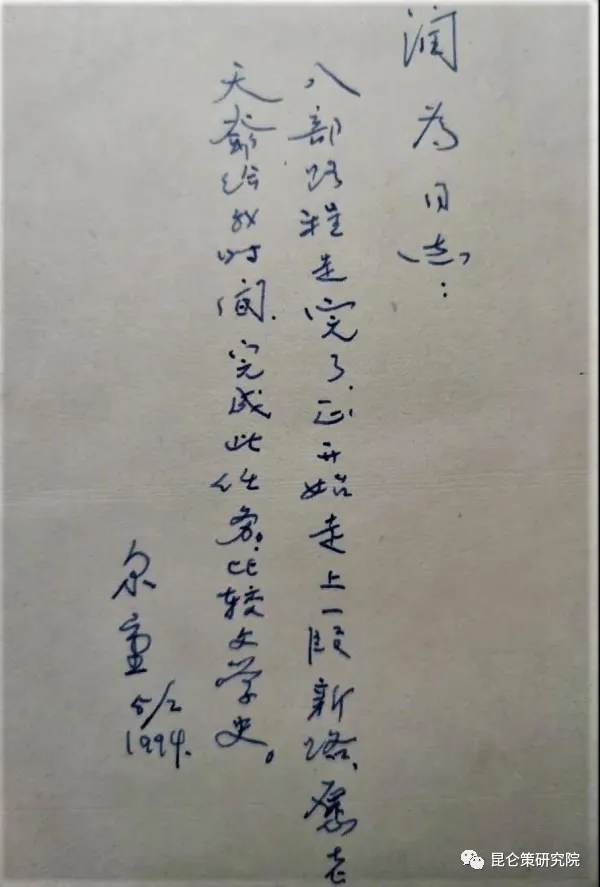 润为同志：
八部路程走完了，正开始走上一段新路，愿老
天爷给我时间，完成此任务。比较文学史。
泉重
5/2
1994.
昆仑策研究院